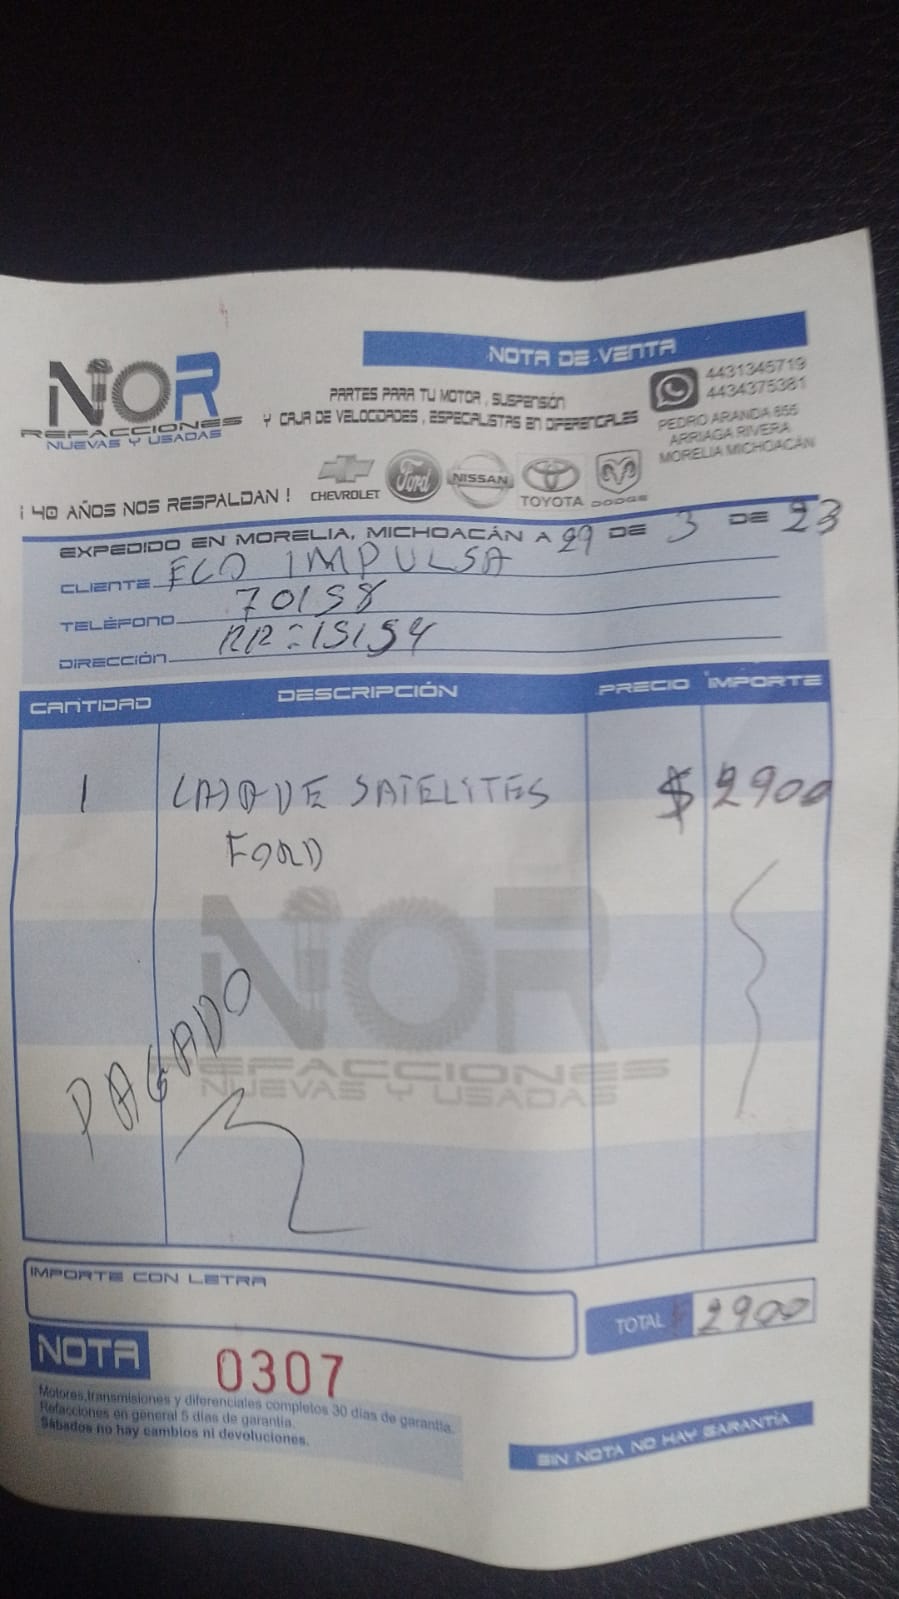 NOTA DE VENTA
NOR
REFACCIONES
NUEVAS Y USADAS
PARTES PARA TU MOTOR, SUSPENSIÓN
Y CAJA DE VELOCIDADES, ESPECIALISTAS EN DIFERENCIALES
4431345719
4434375381
PEDRO ARANDA 655
ARRIAGA RIVERA
MORELIA MICHOACÁN
¡40 AÑOS NOS RESPALDAN!
CHEVROLET
Ford
NISSAN
TOYOTA
DODGE
EXPEDIDO EN MORELIA, MICHOACÁN A 29 DE 3 DE 23
CLIENTE ECO IMPULSA
TELÉFONO 70158
DIRECCIÓN RR=15154
CANTIDAD DESCRIPCIÓN PRECIO IMPORTE
1 SATELITES $ 2900
FORD
NOR
REFACCIONES
NUEVAS Y USADAS
PAGADO
IMPORTE CON LETRA
TOTAL $ 2900
NOTA 0307
Motores,transmisiones y diferenciales completos 30 días de garantía.
Refacciones en general 5 días de garantía.
Sábados no hay cambios ni devoluciones.
SIN NOTA NO HAY GARANTÍA